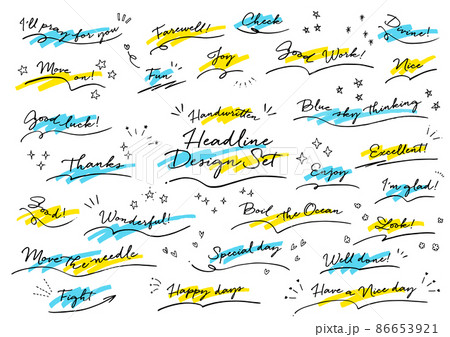 I'll pray for you
Farewell!
Check
Divine!
Move
on!
Fun
Joy
Good Work!
Nice
Good
luck!
Handwritten
Headline
Design Set
Blue
sky Thinking
Thanks
Enjoy
Excellent!
I'm glad!
Good!
Wonderful!
Boil The Ocean
Look!
Move The needle
Special day
Well done!
Fight
Happy days
Have a Nice day
pixta.jp - 86653921